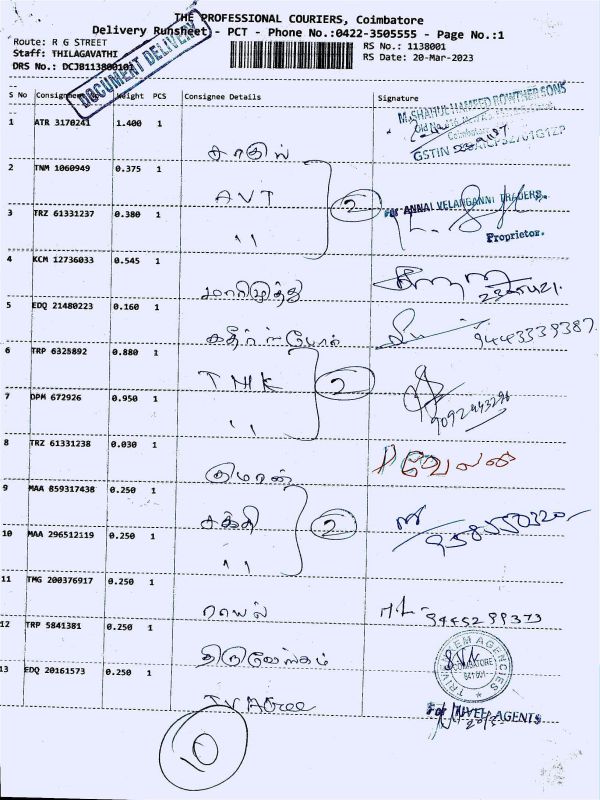 THE PROFESSIONAL COURIERS, Coimbatore
Delivery Runsheet - PCT - Phone No.:0422-3505555 - Page No.:1
Route: R G STREET
RS No.: 1138001
Staff: THILAGAVATHI
RS Date: 20-Mar-2023
DRS No.: DCJB113800101
DOCUMENT DELIVERY
S No Weight PCS Consignee Details Signature
1 ATR 3170241 1.400 1
M.SHAHUL HAMEED ROWTHER SONS
Coimbatore
GSTIN
சாதிஸ்
2 TNM 1060949 0.375 1
AVT 2
For ANNAI VELANGANNI TRADERS.
3 TRZ 61331237 0.380 1
Proprietor.
"
4 KCM 12736033 0.545 1
மாரிமுத்து
5 EDQ 21480223 0.160 1
9443339387
6 TRP 6325892 0.880 1
TMK 2
7 DPM 672926 0.950 1
9092443296
"
8 TRZ 61331238 0.030 1
P வேலன்
9 MAA 859317438 0.250 1
சக்தி 2
10 MAA 296512119 0.250 1
"
11 TMG 200376917 0.250 1
ராயல்
9445299373
12 TRP 5841381 0.250 1
AGENCIES
COIMBATORE
641 001
13 EDQ 20161573 0.250 1
TV AGree
AGENTS
10